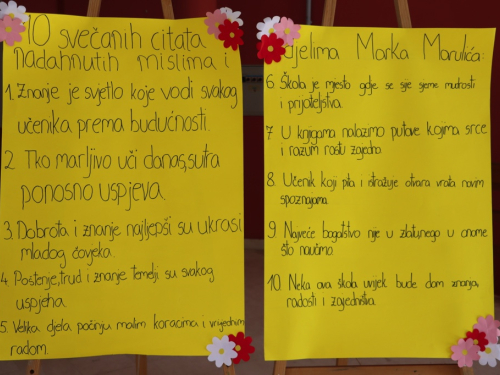 10 svečanih citata
nadahnutih mislima i
1. Znanje je svjetlo koje vodi svakog
učenika prema budućnosti.
2. Tko marljivo uči danas,sutra
ponosno uspjeva.
3. Dobrota i znanje najljepši su ukrasi
mladog čovjeka.
4. Poštenje,trud i znanje temelji su svakog
uspjeha.
5. Velika djela počinju malim koracima i vrijednim
radom.
djelima Marka Marulića:
6. Škola je mjesto gdje se sije sjeme mudrosti
i prijateljstva.
7. U knjigama nalazimo putove kojima srce
i razum rastu zajedno.
8. Učenik koji pita i istražuje otvara vrata novim
spoznajama.
9. Najveće bogatstvo nije u zlatu,nego u onome
što naučimo.
10. Neka ova škola uvijek bude dom znanja,
radosti i zajedništva.